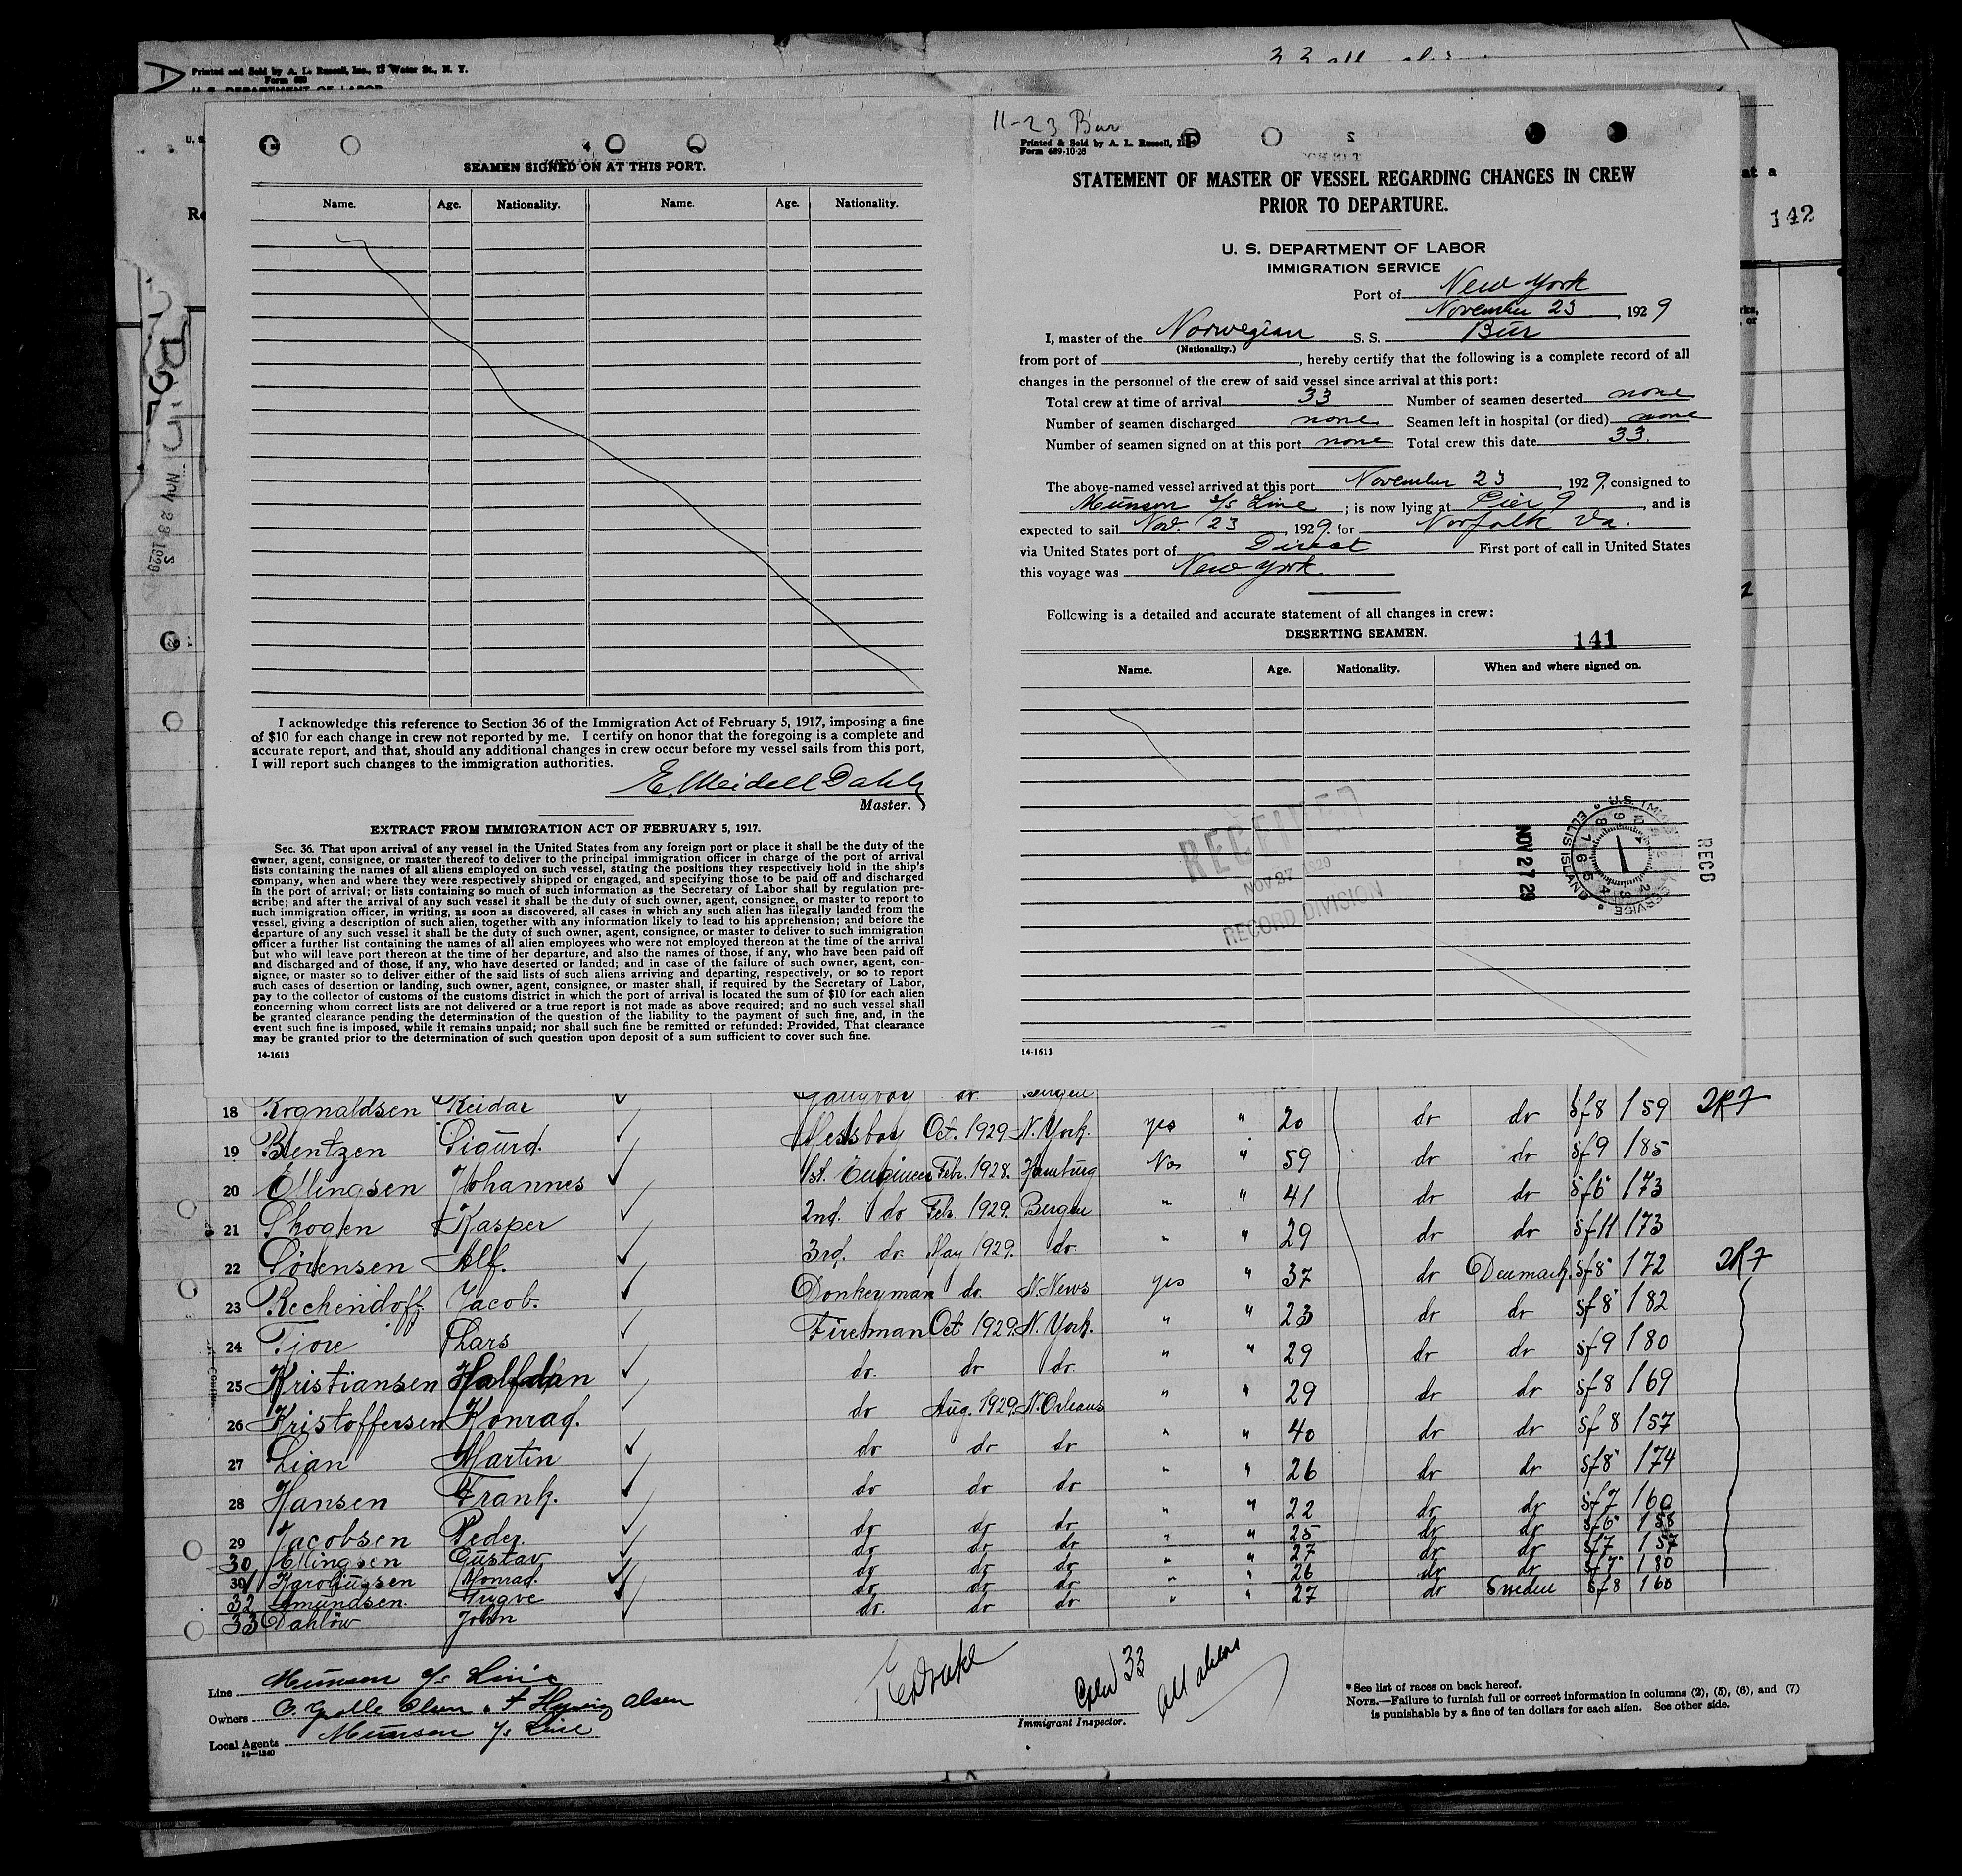 Printed and Sold by A. L. Russell, Inc., 13 Water St., N. Y.
Form 689
U. S. DEPARTMENT OF LABOR
at a
142
NOV 23 1929
SEAMEN SIGNED ON AT THIS PORT.
Name. Age. Nationality. Name. Age. Nationality.
I acknowledge this reference to Section 36 of the Immigration Act of February 5, 1917, imposing a fine
of $10 for each change in crew not reported by me. I certify on honor that the foregoing is a complete and
accurate report, and that, should any additional changes in crew occur before my vessel sails from this port,
I will report such changes to the immigration authorities.
E. Meidell Dahl
Master.
EXTRACT FROM IMMIGRATION ACT OF FEBRUARY 5, 1917.
Sec. 36. That upon arrival of any vessel in the United States from any foreign port or place it shall be the duty of the
owner, agent, consignee, or master thereof to deliver to the principal immigration officer in charge of the port of arrival
lists containing the names of all aliens employed on such vessel, stating the positions they respectively hold in the ship's
company, when and where they were respectively shipped or engaged, and specifying those to be paid off and discharged
in the port of arrival; or lists containing so much of such information as the Secretary of Labor shall by regulation pre-
scribe; and after the arrival of any such vessel it shall be the duty of such owner, agent, consignee, or master to report to
such immigration officer, in writing, as soon as discovered, all cases in which any such alien has illegally landed from the
vessel, giving a description of such alien, together with any information likely to lead to his apprehension; and before the
departure of any such vessel it shall be the duty of such owner, agent, consignee, or master to deliver to such immigration
officer a further list containing the names of all alien employees who were not employed thereon at the time of the arrival
but who will leave port thereon at the time of her departure, and also the names of those, if any, who have been paid off
and discharged and of those, if any, who have deserted or landed; and in case of the failure of such owner, agent, con-
signee, or master so to deliver either of the said lists of such aliens arriving and departing, respectively, or so to report
such cases of desertion or landing, such owner, agent, consignee, or master shall, if required by the Secretary of Labor,
pay to the collector of customs of the customs district in which the port of arrival is located the sum of $10 for each alien
concerning whom correct lists are not delivered or a true report is not made as above required; and no such vessel shall
be granted clearance pending the determination of the question of the liability to the payment of such fine, and, in the
event such fine is imposed, while it remains unpaid; nor shall such fine be remitted or refunded: Provided, That clearance
may be granted prior to the determination of such question upon deposit of a sum sufficient to cover such fine.
14-1613
11-23 Bur
Printed & Sold by A. L. Russell,
Form 689-10-28
STATEMENT OF MASTER OF VESSEL REGARDING CHANGES IN CREW
PRIOR TO DEPARTURE.
U. S. DEPARTMENT OF LABOR
IMMIGRATION SERVICE
Port of New York
November 23, 1929
I, master of the Norwegian S. S. Bur
(Nationality.)
from port of , hereby certify that the following is a complete record of all
changes in the personnel of the crew of said vessel since arrival at this port:
Total crew at time of arrival 33 Number of seamen deserted none
Number of seamen discharged none Seamen left in hospital (or died) none
Number of seamen signed on at this port none Total crew this date 33.
The above-named vessel arrived at this port November 23, 1929, consigned to
Munson S/S Line ; is now lying at Pier 9, and is
expected to sail Nov. 23, 1929. for Norfolk Va.
via United States port of Direct First port of call in United States
this voyage was New York
Following is a detailed and accurate statement of all changes in crew:
DESERTING SEAMEN.
141
Name. Age. Nationality. When and where signed on.
RECEIVED
NOV 27 1929
RECORD DIVISION
NOV 27 29
U.S. IMMIGRATION SERVICE ELLIS ISLAND
RECD
14-1613
18 Rognaldsen Reidar Bergen
19 Bentzen Sigurd. Messboy Oct. 1929 N. York. yes " 20 do do 5f8 159 2R7
20 Ellingsen Johannes 1st. Engineer Febr. 1928. Hamburg No " 59 do do 5f9 185
21 Skoglen Kasper 2nd. do Feb. 1929. Bergen " " 41 do do 5f6 173
22 Sörensen Alf. 3rd. do. May 1929. do. " " 29 do do 5f11 173
23 Rechendoff Jacob. Donkeyman do. N. News yes " 37 do Denmark. 5f8 172 2R7
24 Tjore Lars Fireman Oct 1929. N. York. " " 23 do do 5f8 182
25 Kristiansen Halfdan do. do do. " " 29 do do 5f9 180
26 Kristoffersen Konrad. do Aug. 1929. N. Orleans " " 29 do do 5f8 169
27 Lian Martin do do do " " 40 do do 5f8 157
28 Hansen Frank. do do do " " 26 do do 5f8 174
29 Jacobsen Peder. do do do " " 22 do do 5f7 160
30 Ellingsen Gustav do do do " " 25 do do 5f6 158
31 Karoliussen Konrad. do do do " " 27 do do 5f7 157
32 Amundsen. Trygve do do do " " 26 do do 180
33 Dahlöw John do. do do " " 27 do Sweden 5f8 160
Line Munson S/S Line
Owners Olsen Olsen
Local Agents Munson S/S Line
14-1240
Crew 33
all aliens
Immigrant Inspector.
* See list of races on back hereof.
NOTE.—Failure to furnish full or correct information in columns (2), (5), (6), and (7)
is punishable by a fine of ten dollars for each alien. See other side.